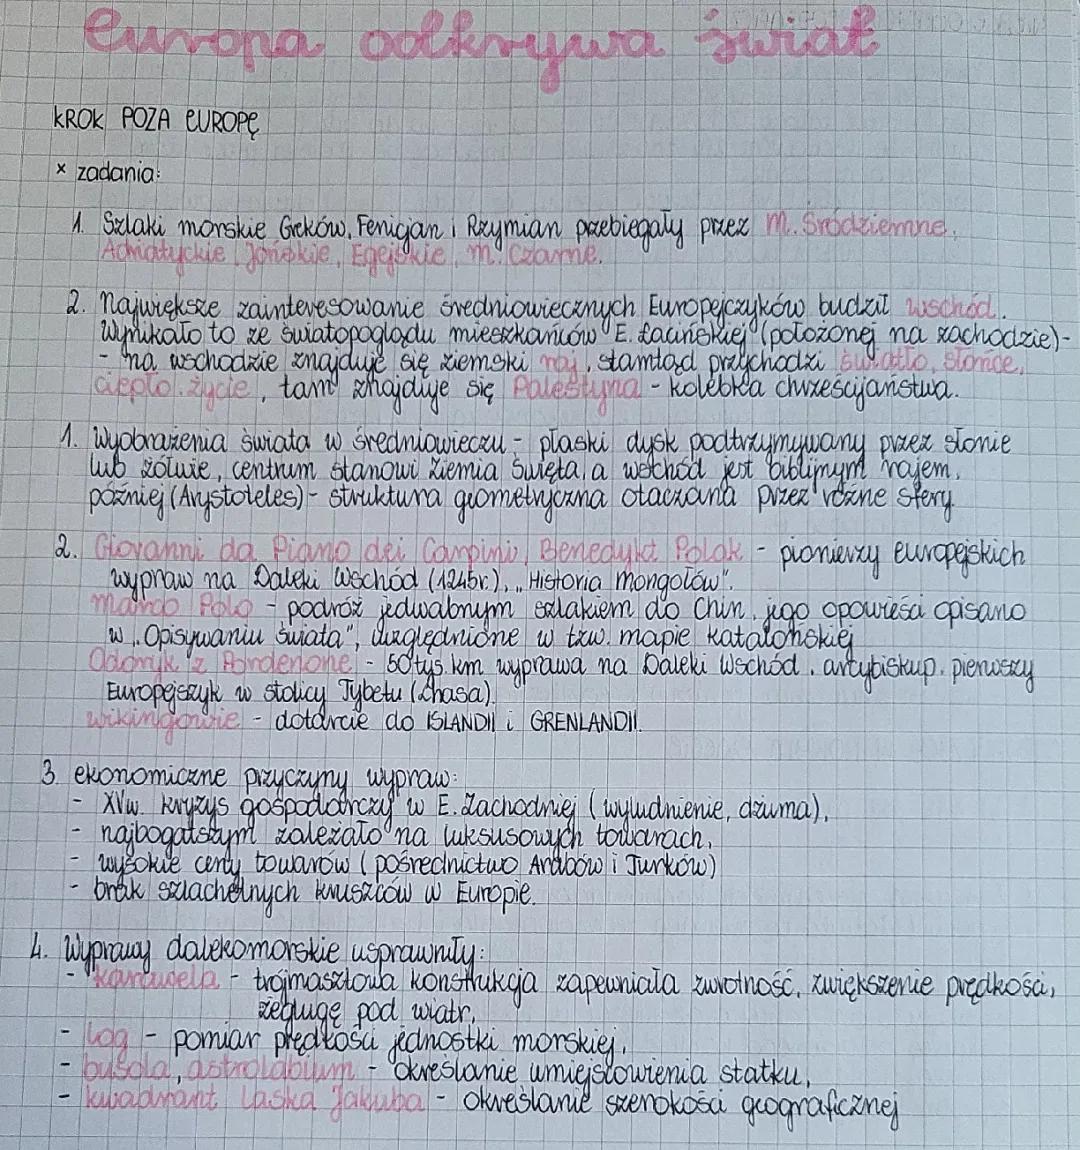 Europa odkrywa świat
KROK POZA EUROPĘ
x zadania:
1. Szlaki morskie Greków, Fenicjan i Rzymian przebiegały przez M. Śródziemne,
Adriatyckie, Jońskie, Egejskie, M. Czarne.
2. Największe zainteresowanie średniowiecznych Europejczyków budził wschód.
Wynikało to ze światopoglądu mieszkańców E. Łacińskiej (położonej na zachodzie)-
- na wschodzie znajduje się ziemski raj, stamtąd przychodzi światło, słońce,
ciepło, życie, tam znajduje się Palestyna - kolebka chrześcijaństwa.
1. Wyobrażenia świata w średniowieczu - płaski dysk podtrzymywany przez słonie
lub żółwie, centrum stanowi Ziemia Święta, a wschód jest biblijnym rajem,
później (Arystoteles) - struktura geometryczna otaczana przez różne sfery.
2. Giovanni da Piano dei Carpini, Benedykt Polak - pionierzy europejskich
wypraw na Daleki Wschód (1245r.), "Historia Mongołów".
Marco Polo - podróż jedwabnym szlakiem do Chin, jego opowieści opisano
w "Opisywaniu świata", uwzględnione w tzw. mapie katalońskiej
Odoryk z Pordenone - 50 tys. km wyprawa na Daleki Wschód, arcybiskup, pierwszy
Europejczyk w stolicy Tybetu (Lhasa).
Wikingowie - dotarcie do ISLANDII i GRENLANDII.
3. ekonomiczne przyczyny wypraw:
- XVw. kryzys gospodarczy w E. Zachodniej (wyludnienie, dżuma),
- najbogatszym zależało na luksusowych towarach,
- wysokie ceny towarów (pośrednictwo Arabów i Turków)
- brak szlachetnych kruszców w Europie.
4. Wyprawy dalekomorskie usprawniły:
- karawela - trójmasztowa konstrukcja zapewniała zwrotność, zwiększenie prędkości,
żeglugę pod wiatr,
- Log - pomiar prędkości jednostki morskiej,
- busola, astrolabium - określanie umiejscowienia statku,
- kwadrant Laska Jakuba - określanie szerokości geograficznej